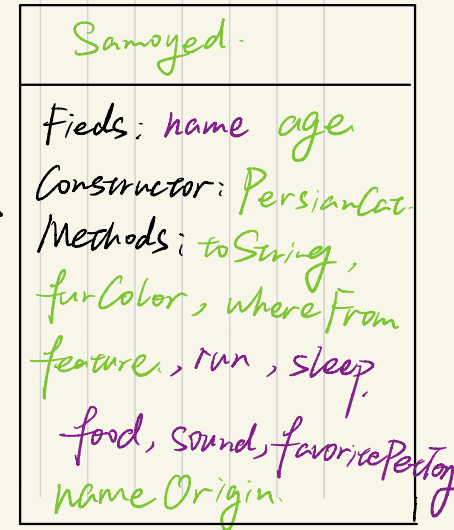 Samoyed.
Fieds: name age
Constructor: PersianCat.
Methods: toString,
furColor, where From
feature, run, sleep,
food, sound, favoritePetToy
name Origin.